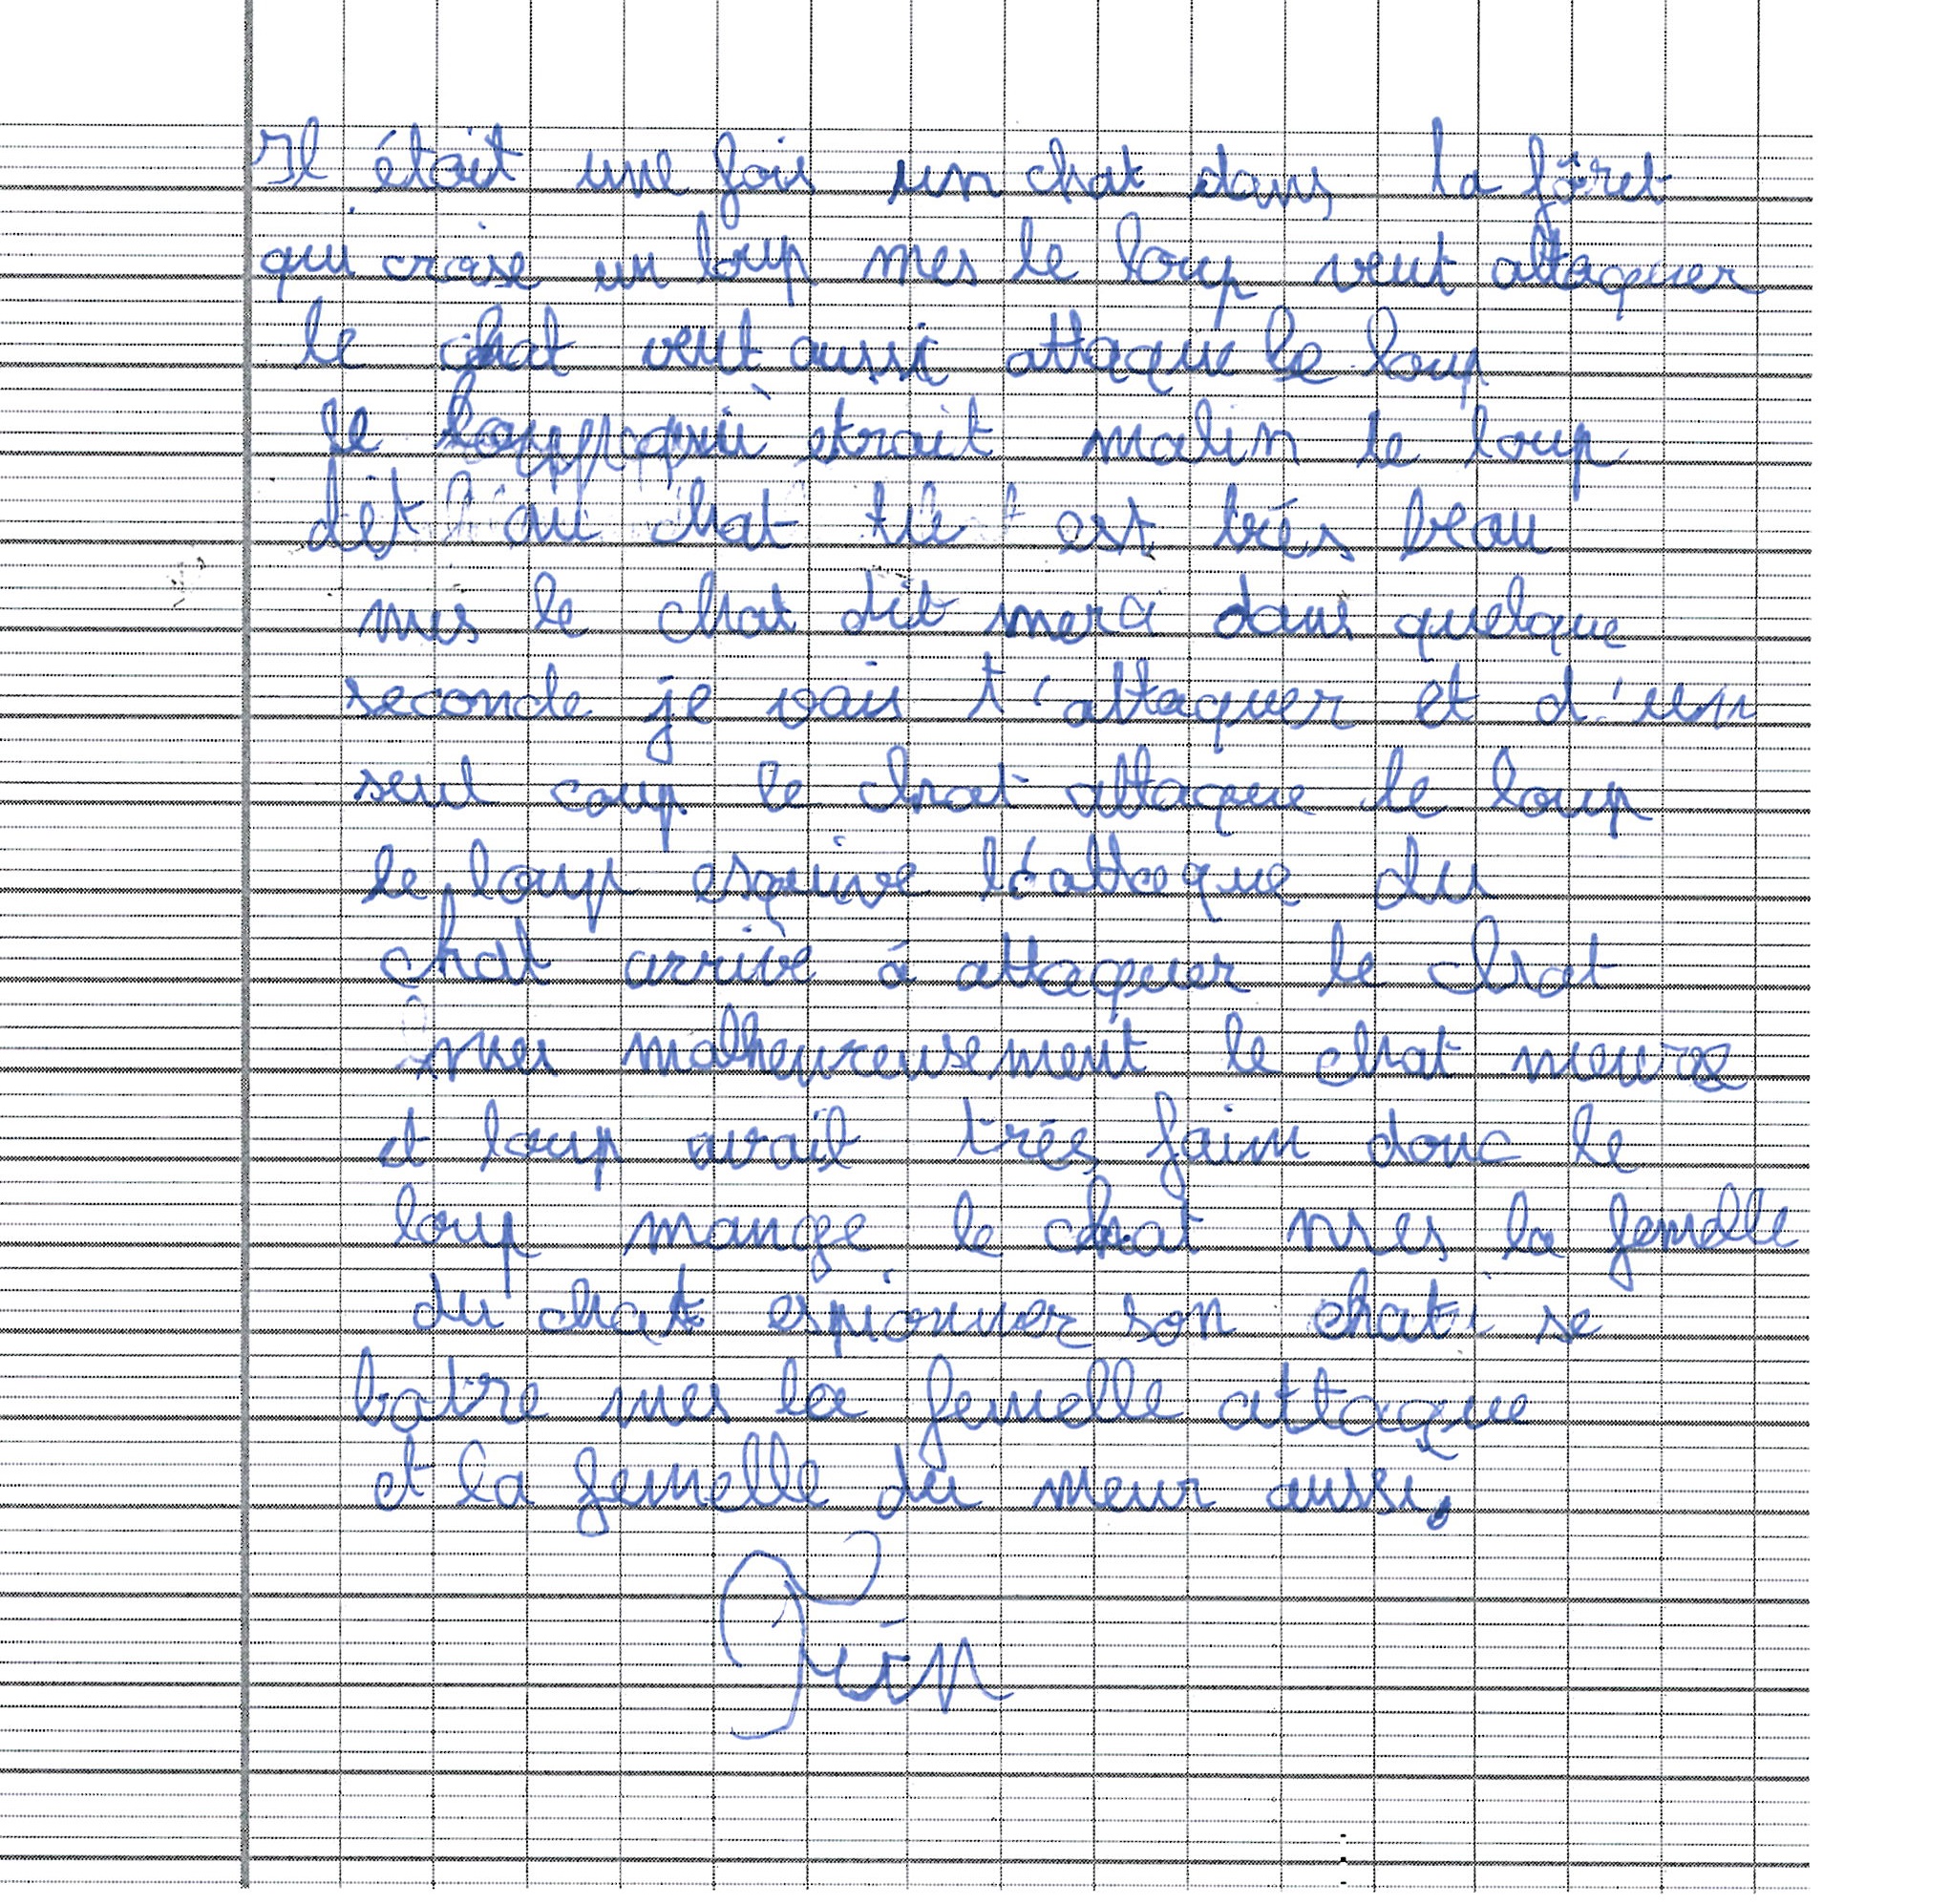 Il était une fois un chat dans la fôret
qui croise un loup mes le loup veut attaquer
le chat veut aussi attaque le loup
le loup qui etrait malin le loup
dit au chat tu est trés beau
mes le chat dit merci dans quelque
seconde je vais t'attaquer et d'un
seul coup le chat attaque le loup
le loup esquive l'attaque du
chat arrive à attaquer le chat
mes malheureusement le chat meure
et loup avait trés faim donc le
loup mange le chat mes la femelle
du chat espionner son chat se
batre mes la femelle attaque
et la femelle du meur aussi.
Fin